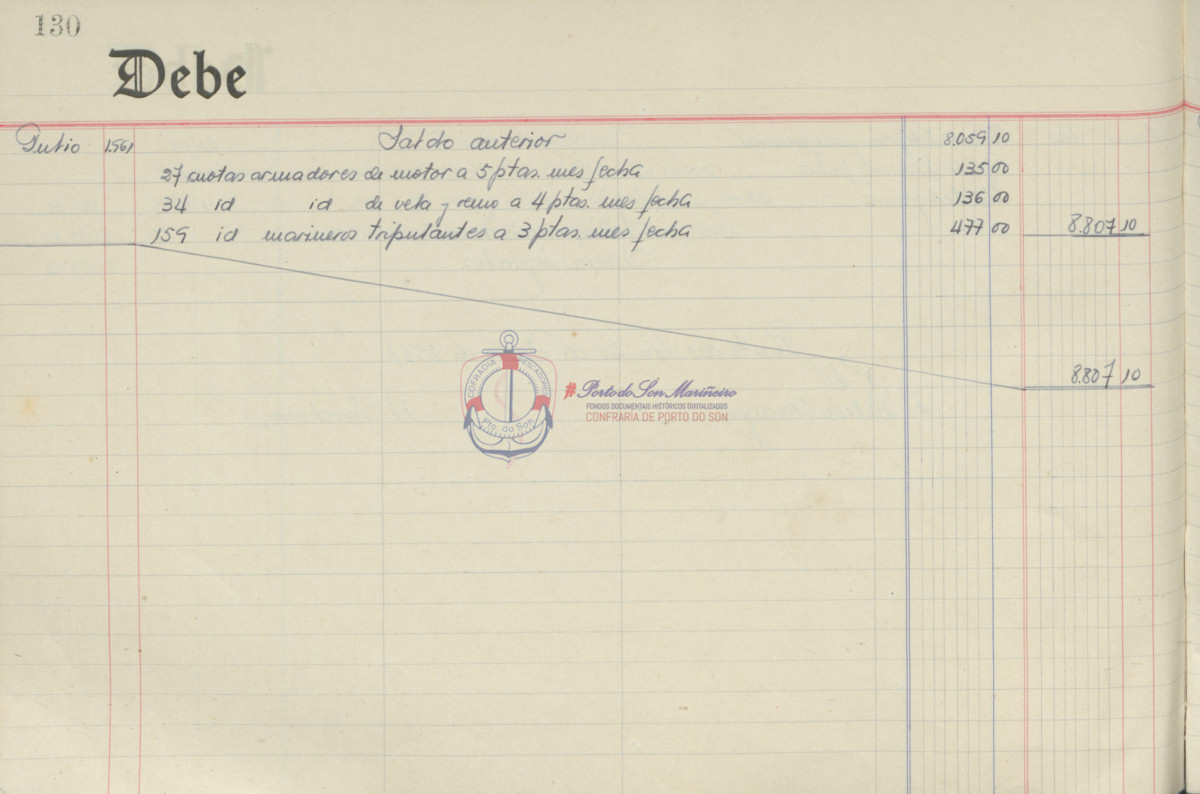 130
Debe
Julio 1.961 Saldo anterior 8.059 10
27 cuotas armadores de motor a 5 ptas. mes fecha 135 00
34 id id de vela y remo a 4 ptas. mes fecha 136 00
159 id marineros tripulantes a 3 ptas. mes fecha 477 00 8.807 10
8.807 10
COFRADIA PESCADORES
Pto. do Son
#Porto do Son Mariñeiro
FONDOS DOCUMENTAIS HISTÓRICOS DIXITALIZADOS
CONFRARÍA DE PORTO DO SON